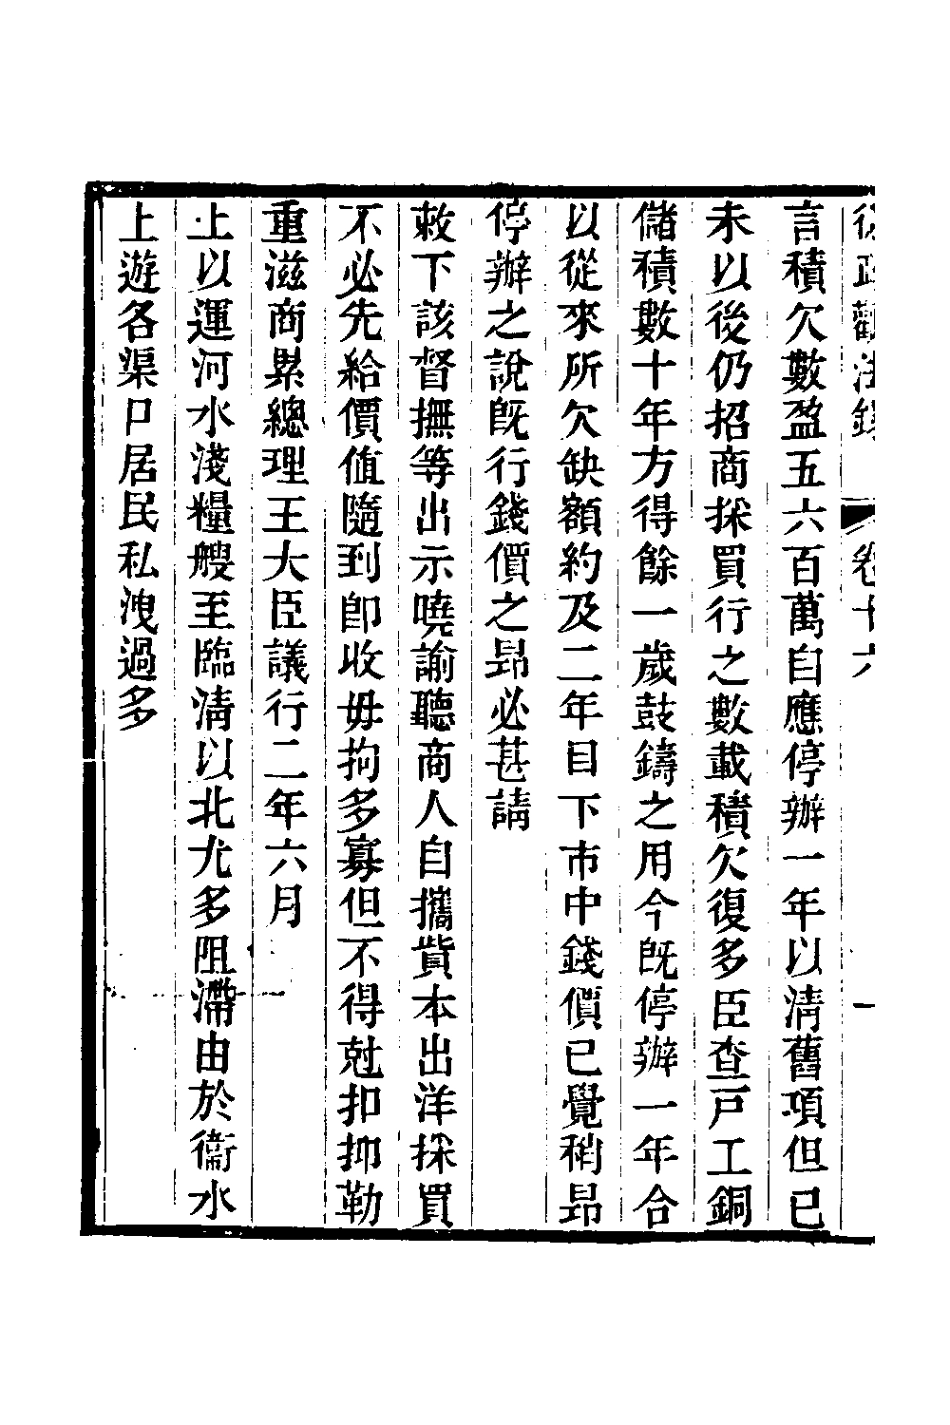 言積欠數盈五六百萬自應停辦一年以清舊項但已
未以後仍招商採買行之數載積欠復多臣查戸工銅
儲積數十年方得餘一歲鼓鑄之用今旣停辦一年合
以從來所欠缺額約及二年目下市中錢價已覺稍昻
停辦之說旣行錢價之昻必甚請
敕下該督撫等出示曉諭聽商人自攜貲本出洋採買
不必先給價值隨到卽收毋拘多寡但不得尅扣抑勒
重滋商累總理王大臣議行二年六月
上以運河水淺糧艘至臨淸以北尤多阻滯由於衞水
上遊各渠口居民私洩過多